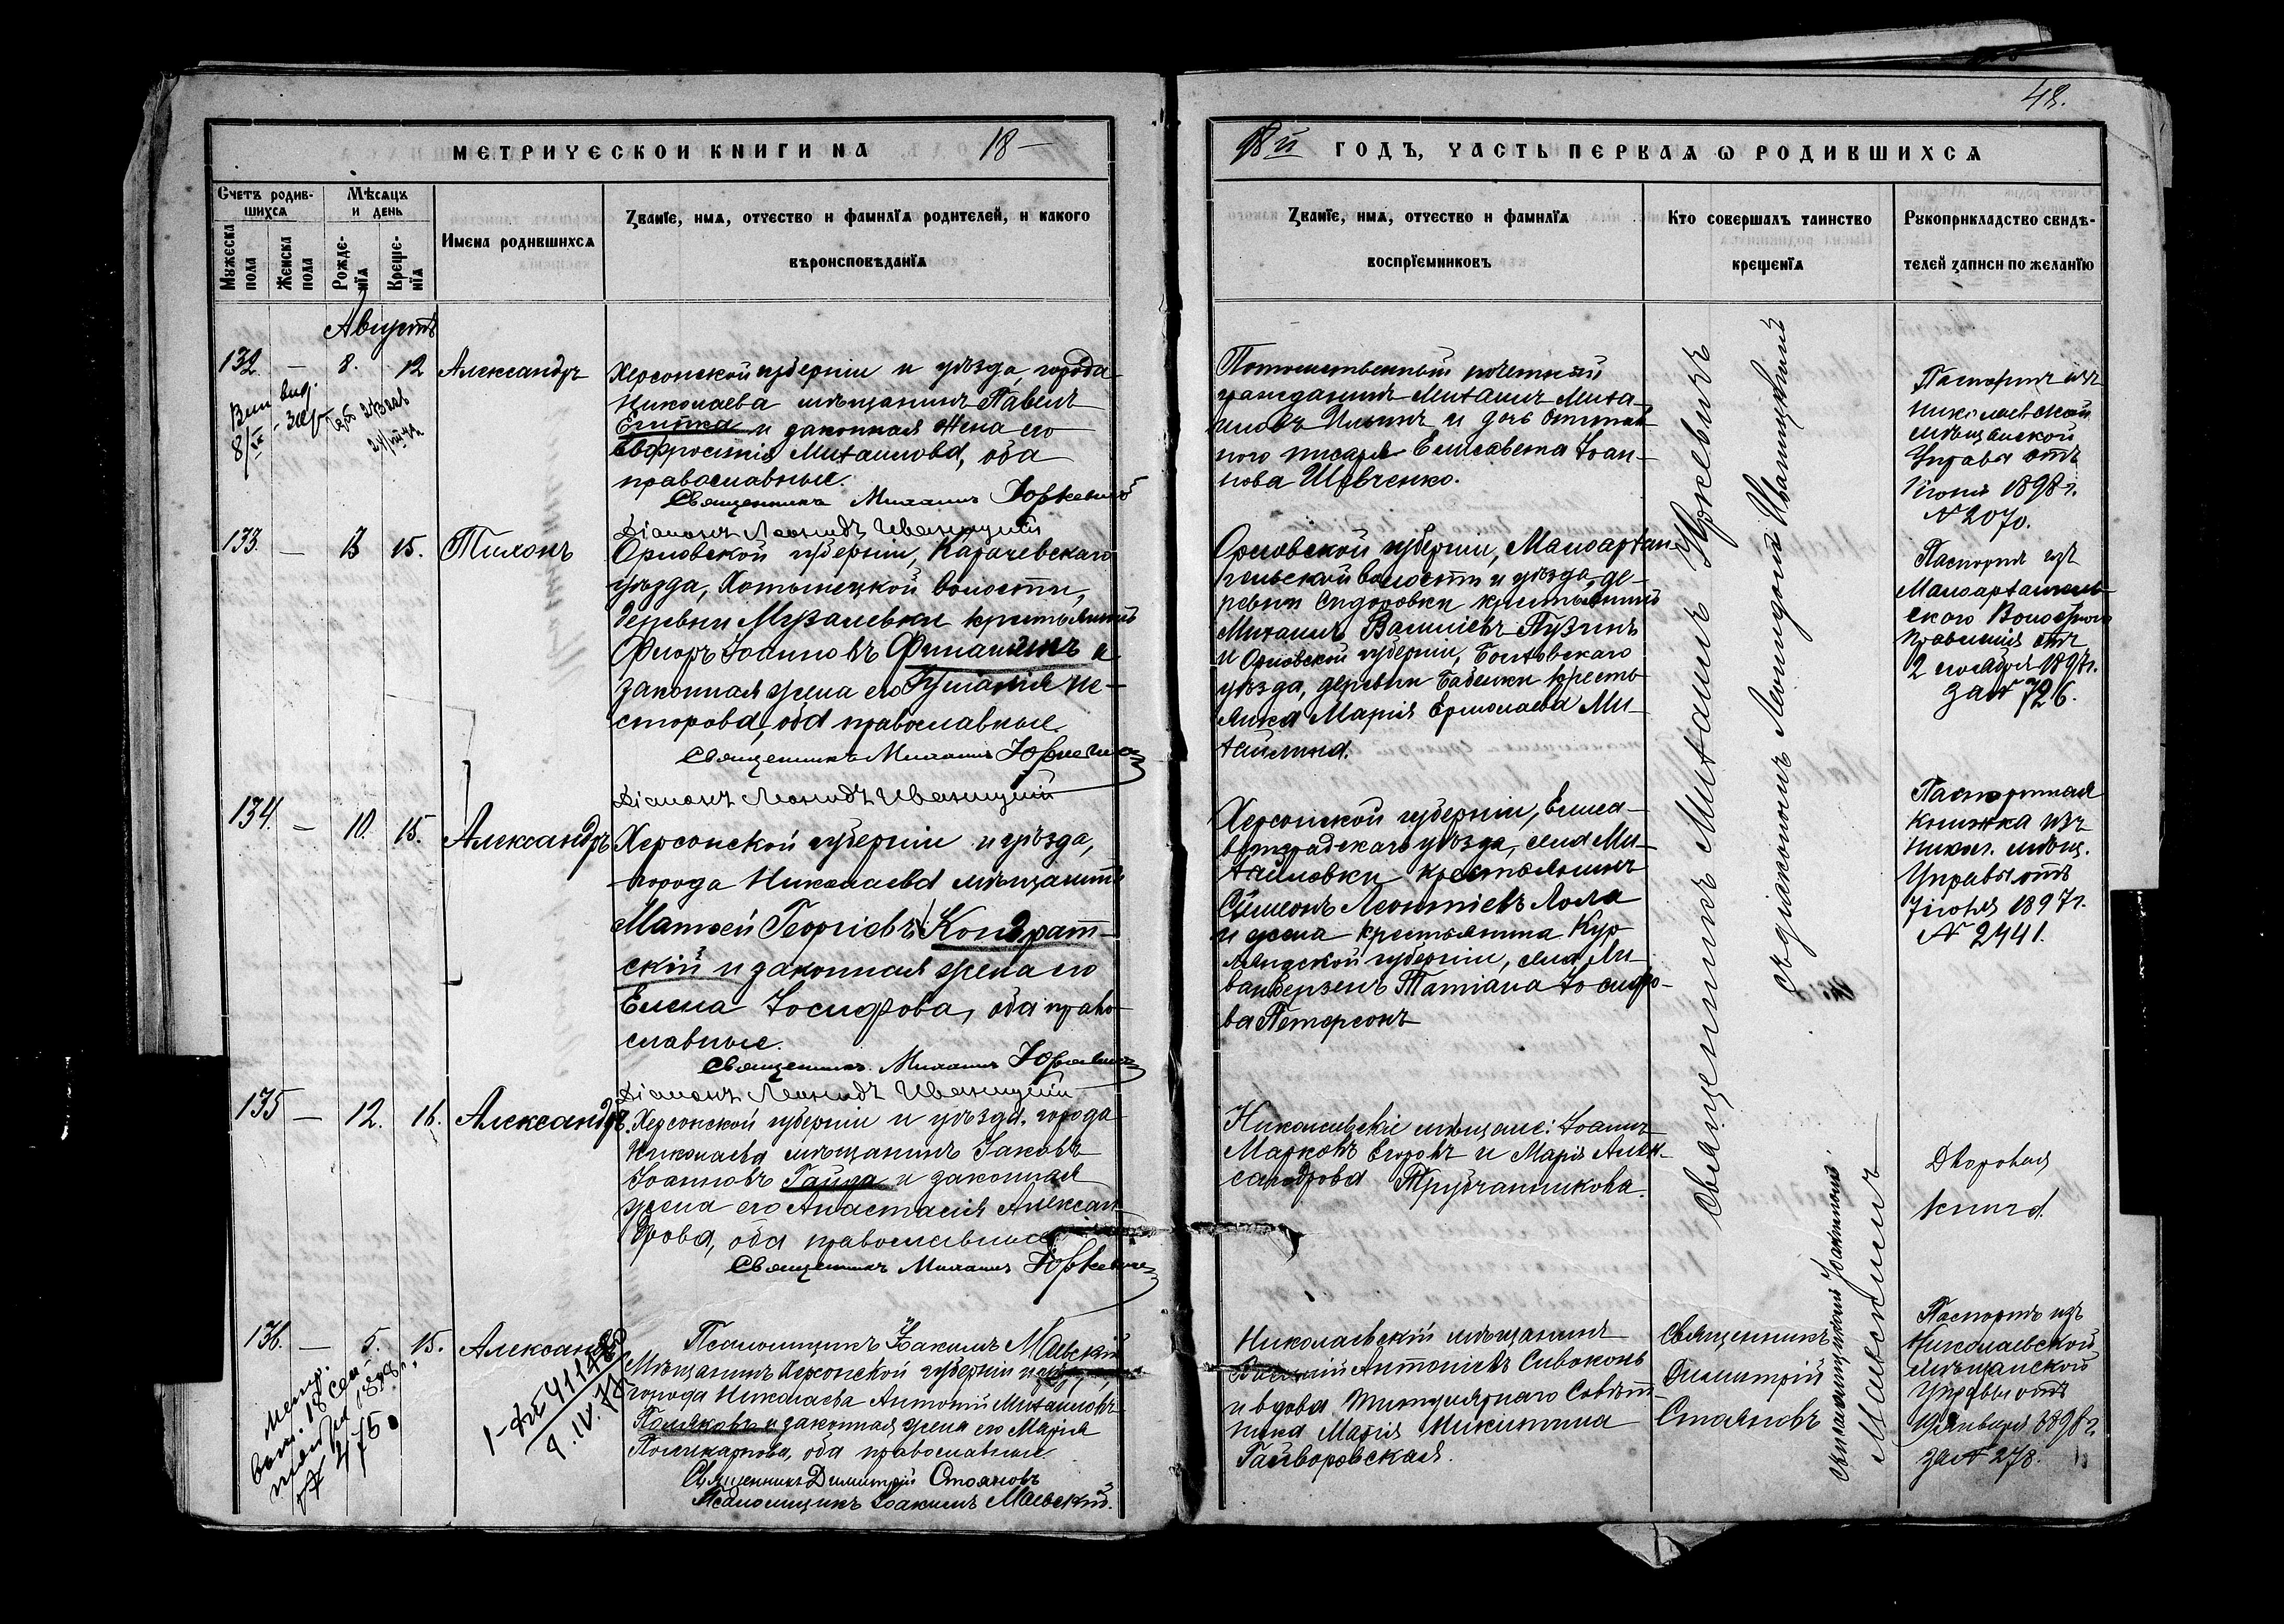 48.
МЕТРИЧЕСКОЙ КНИГИ НА 18—
98й ГОДЪ, ЧАСТЬ ПЕРВАЯ Ѡ РОДИВШИХСЯ
Счетъ родив-
шихся
Мужеска
пола
Женска
пола
Мѣсяцъ
и день
Рожде-
нїя
Креще-
нїя
Имена родившихся
Званїе, имя, отчество и фамилїя родителей, и какого
вѣроисповѣданїя
Званїе, имя, отчество и фамилїя
воспрїемниковъ
Кто совершалъ таинство
крещенїя
Рукоприкладство свидѣ-
телей записи по желанїю
Августъ
132 — 8. 12 Александръ
Херсонской губерніи и уѣзда, города
Николаева мѣщанинъ Павелъ
и законная жена его
Евфросинія Михаилова, оба
православные.
Священникъ Михаилъ Юркевичъ
Діаконъ Леонидъ Иваницкій
Потомственный почетный
гражданинъ Михаилъ Миха-
иловъ Ильинъ и дочь отстав-
ного писаря Елисавета Іоан-
нова Шевченко.
Паспортъ изъ
Николаевской
мѣщанской
Управы отъ
1898 г.
№ 2070.
133. — 13 15. Тихонъ
Орловской губерніи, Карачевскаго
уѣзда, Хотынецкой волости,
деревни Музалевки крестьянинъ
Флоръ Іоанновъ Филашинъ и
законная жена его Гликерія Не-
сторова, оба православные.
Священникъ Михаилъ Юркевичъ
Діаконъ Леонидъ Иваницкій
Орловской губерніи, Малоархан-
гельской волости и уѣзда, де-
ревни Сидоровки крестьянинъ
Михаилъ Пузинъ
и Орловской губерніи, Болховскаго
уѣзда, деревни кресть-
янка Марія Ермолаева Ми-
хайлина.
Паспортъ изъ
Малоархангель-
скаго Волостного
правленія отъ
2 ноября 1897 г.
за № 726.
134. — 10. 15. Александръ
Херсонской губерніи и уѣзда,
города Николаева мѣщанинъ
Матѳей Георгіевъ Кондрат-
скій и законная жена его
Елена Іосифова, оба право-
славные.
Священникъ Михаилъ Юркевичъ
Діаконъ Леонидъ Иваницкій
Херсонской губерніи, Елиса-
ветградскаго уѣзда, села Ми-
хайловки крестьянинъ
Симеонъ Леонтіевъ Лола
и жена крестьянина Кур-
ляндской губерніи, села Ли-
Татіана Іосифо-
ва Петерсонъ
Паспортная
книжка изъ
Никол. мѣщ.
Управы отъ
1897 г.
№ 2441.
135 — 12. 16. Александръ.
Херсонской губерніи и уѣзда, города
Николаева мѣщанинъ Іаковъ
Іоанновъ Гайда и законная
жена его Анастасія Алексан-
дрова, оба православные
Священникъ Михаилъ Юркевичъ
Николаевскіе мѣщане: Іоаннъ
Марковъ Егоровъ и Марія Алек-
сандрова Трубчанинкова.
Дворовая
книга.
Священникъ Михаилъ Юркевичъ
съ діакономъ Леонидомъ Иваницкимъ
Псаломщикъ Іоакимъ Маевскій
136. — 5. 15. Александръ
Мѣщанинъ Херсонской губерніи и уѣзда,
города Николаева Антоній Михаиловъ
Поляковъ и законная жена его Марія
Поликарпова, оба православные.
Священникъ Димитрій Стояновъ
Псаломщикъ Іоакимъ Маевскій.
Николаевскій мѣщанинъ
Антоніевъ Сивоконь
и вдова Титулярнаго Совѣт-
ника Марія Никитина
Гайворовская.
Священникъ
Димитрій
Стояновъ
Маевскимъ
Паспортъ изъ
Николаевской
мѣщанской
Управы отъ
1898 г.
за № 278.
№ 475